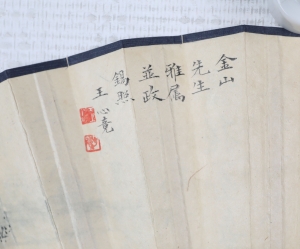 金山
先生
雅属
並政
錫熙
王心竟